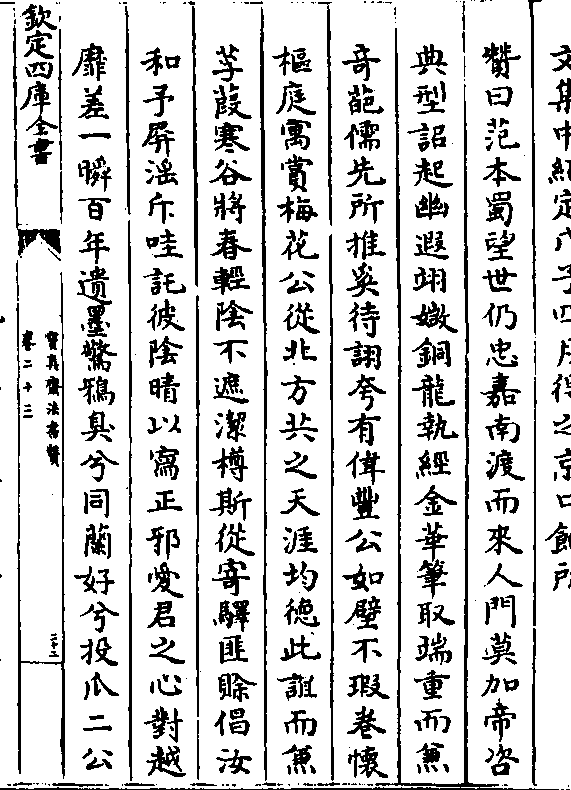 文集中紹定戊子四月得之京口館所
贊曰范本蜀望世仍忠嘉南渡而來人門莫加帝咨
典型詔起幽遐翊媺銅龍執經金華筆取端重而無
奇葩儒先所推奚待詡夸有偉豐公如璧不瑕眷懷
樞庭寓賞梅花公從北方共之天涯均徳此誰而無
莩葭寒谷將春輕陰不遮潔樽斯從寄驛匪賒倡汝
和予屏滛斥哇託彼陰晴以寫正邪愛君之心對越
靡差一瞬百年遺墨驚鴉臭兮同蘭好兮投瓜二公
欽定四庫全書
寳真齋法書贊
卷二十三
二十三